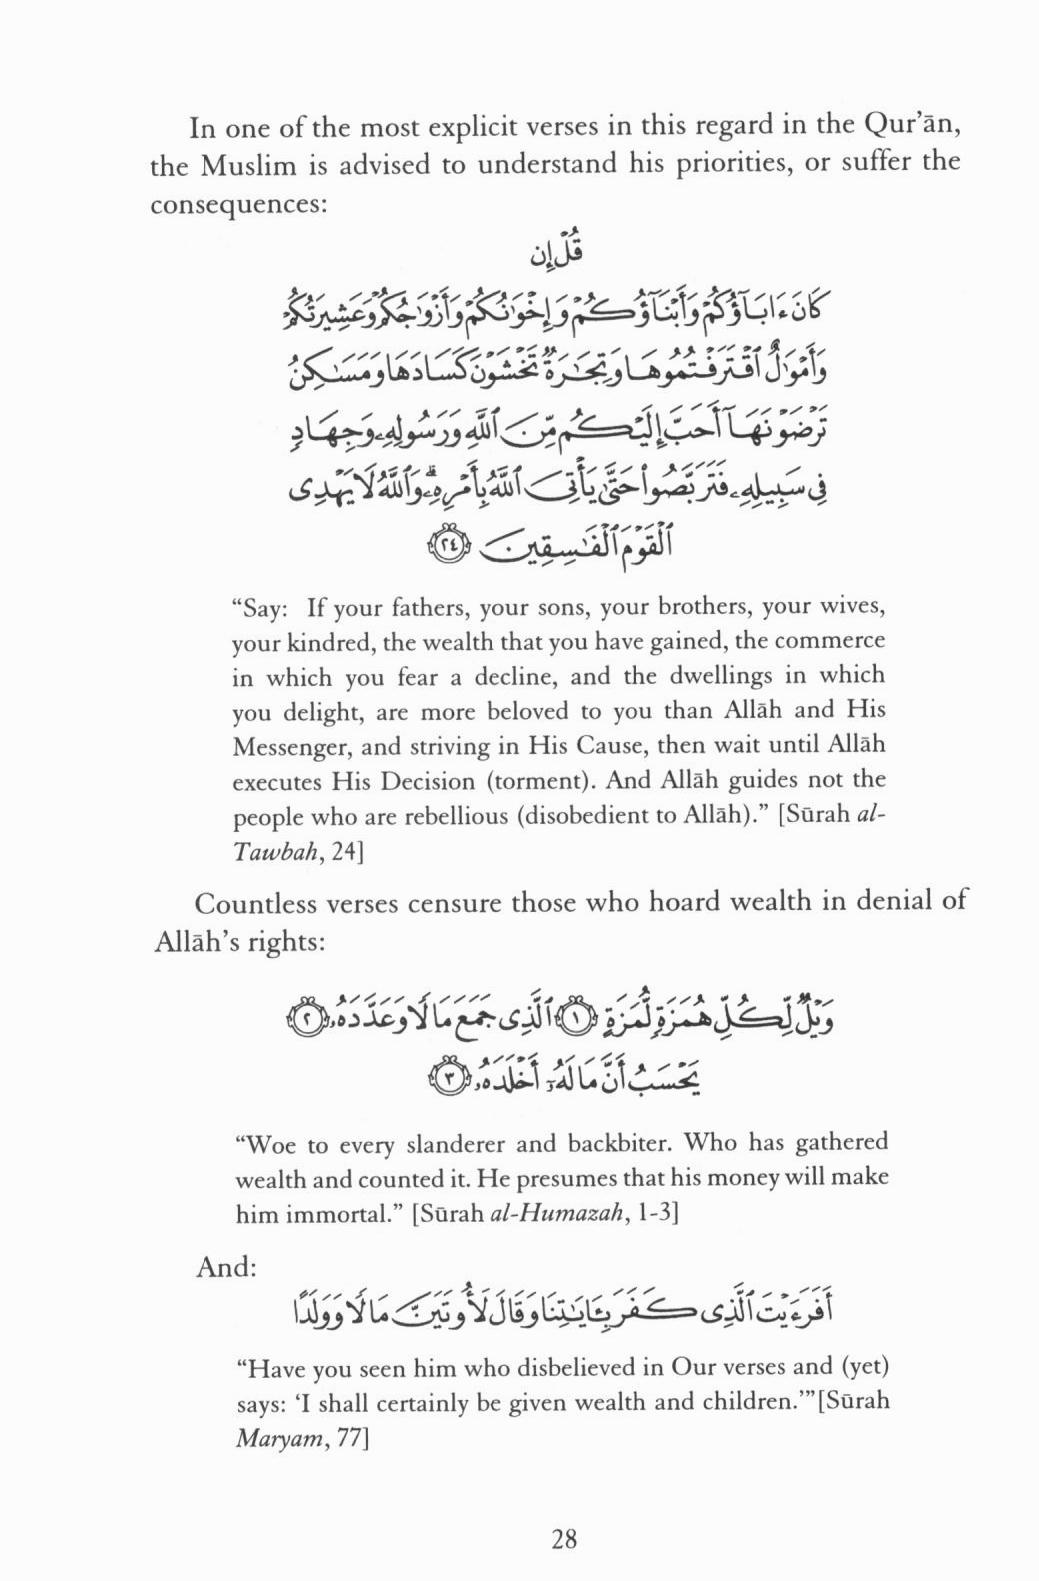 In one of the most explicit verses in this regard in the Qur’ān,
the Muslim is advised to understand his priorities, or suffer the
consequences:
قُلْ إِن
كَانَ ءَابَآؤُكُمْ وَأَبْنَآؤُكُمْ وَإِخْوَٰنُكُمْ وَأَزْوَٰجُكُمْ وَعَشِيرَتُكُمْ
وَأَمْوَٰلٌ ٱقْتَرَفْتُمُوهَا وَتِجَـٰرَةٌ تَخْشَوْنَ كَسَادَهَا وَمَسَـٰكِنُ
تَرْضَوْنَهَآ أَحَبَّ إِلَيْكُم مِّنَ ٱللَّهِ وَرَسُولِهِۦ وَجِهَادٍ
فِى سَبِيلِهِۦ فَتَرَبَّصُوا۟ حَتَّىٰ يَأْتِىَ ٱللَّهُ بِأَمْرِهِۦ ۗ وَٱللَّهُ لَا يَهْدِى
ٱلْقَوْمَ ٱلْفَـٰسِقِينَ ٢٤
“Say: If your fathers, your sons, your brothers, your wives,
your kindred, the wealth that you have gained, the commerce
in which you fear a decline, and the dwellings in which
you delight, are more beloved to you than Allāh and His
Messenger, and striving in His Cause, then wait until Allāh
executes His Decision (torment). And Allāh guides not the
people who are rebellious (disobedient to Allāh).” [Sūrah al-
Tawbah, 24]
Countless verses censure those who hoard wealth in denial of
Allāh’s rights:
وَيْلٌ لِّكُلِّ هُمَزَةٍ لُّمَزَةٍ ١ ٱلَّذِى جَمَعَ مَالًا وَعَدَّدَهُۥ ٢
يَحْسَبُ أَنَّ مَالَهُۥٓ أَخْلَدَهُۥ ٣
“Woe to every slanderer and backbiter. Who has gathered
wealth and counted it. He presumes that his money will make
him immortal.” [Sūrah al-Humazah, 1-3]
And:
أَفَرَءَيْتَ ٱلَّذِى كَفَرَ بِـَٔايَـٰتِنَا وَقَالَ لَأُوتَيَنَّ مَالًا وَوَلَدًا
“Have you seen him who disbelieved in Our verses and (yet)
says: ‘I shall certainly be given wealth and children.’”[Sūrah
Maryam, 77]
28